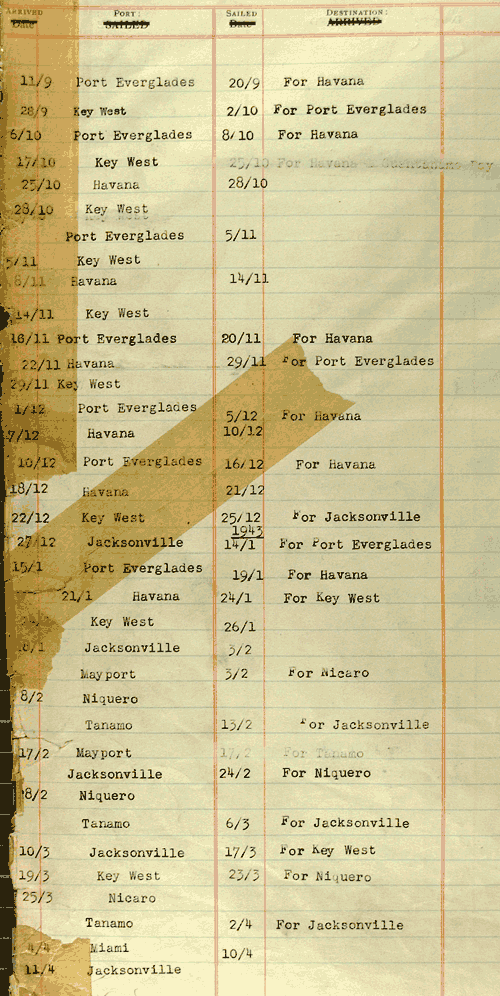 ARRIVED PORT: SAILED DESTINATION:
Date SAILED Date ARRIVED
11/9 Port Everglades 20/9 For Havana
28/9 Key West 2/10 For Port Everglades
6/10 Port Everglades 8/10 For Havana
17/10 Key West 25/10 For Havana & Guantanamo Bay
25/10 Havana 28/10
28/10 Key West
Port Everglades 5/11
5/11 Key West
8/11 Havana 14/11
14/11 Key West
16/11 Port Everglades 20/11 For Havana
22/11 Havana 29/11 For Port Everglades
29/11 Key West
1/12 Port Everglades 5/12 For Havana
7/12 Havana 10/12
10/12 Port Everglades 16/12 For Havana
18/12 Havana 21/12
22/12 Key West 25/12 For Jacksonville
1943
27/12 Jacksonville 14/1 For Port Everglades
15/1 Port Everglades 19/1 For Havana
21/1 Havana 24/1 For Key West
Key West 26/1
8/1 Jacksonville 3/2
Mayport 3/2 For Nicaro
8/2 Niquero
Tanamo 13/2 For Jacksonville
17/2 Mayport 17/2 For Tanamo
Jacksonville 24/2 For Niquero
8/2 Niquero
Tanamo 6/3 For Jacksonville
10/3 Jacksonville 17/3 For Key West
19/3 Key West 23/3 For Niquero
25/3 Nicaro
Tanamo 2/4 For Jacksonville
4/4 Miami 10/4
11/4 Jacksonville